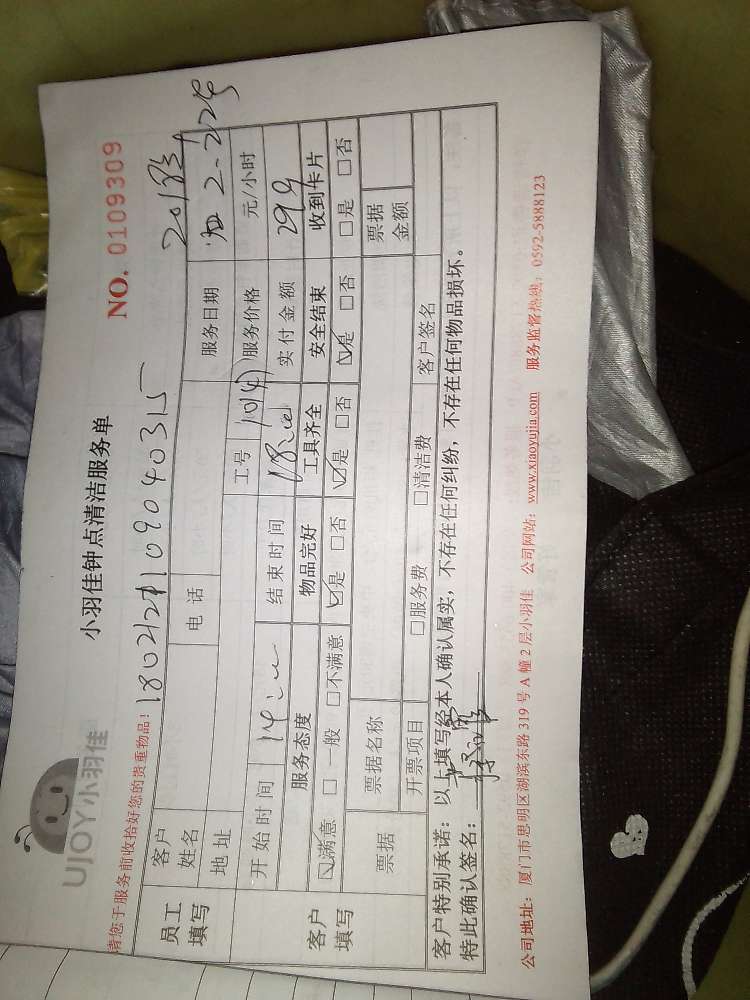 UJOY小羽佳
小羽佳钟点清洁服务单
NO. 0109309
请您于服务前收拾好您的贵重物品!
员工填写
客户姓名
电话
服务日期
2-224
地址
工号
服务价格
元/小时
开始时间
14:
结束时间
18:
实付金额
299
客户填写
服务态度
物品完好
工具齐全
安全结束
收到卡片
☑满意 □一般 □不满意
☑是 □否
☑是 □否
☑是 □否
□是 □否
票据
票据名称
票据金额
开票项目
□服务费
□清洁费
客户签名
客户特别承诺:以上填写经本人确认属实,不存在任何纠纷,不存在任何物品损坏。
特此确认签名:
公司地址:厦门市思明区湖滨东路 319 号 A 幢 2 层小羽佳 公司网站:www.xiaoyujia.com 服务监督热线:0592-5888123